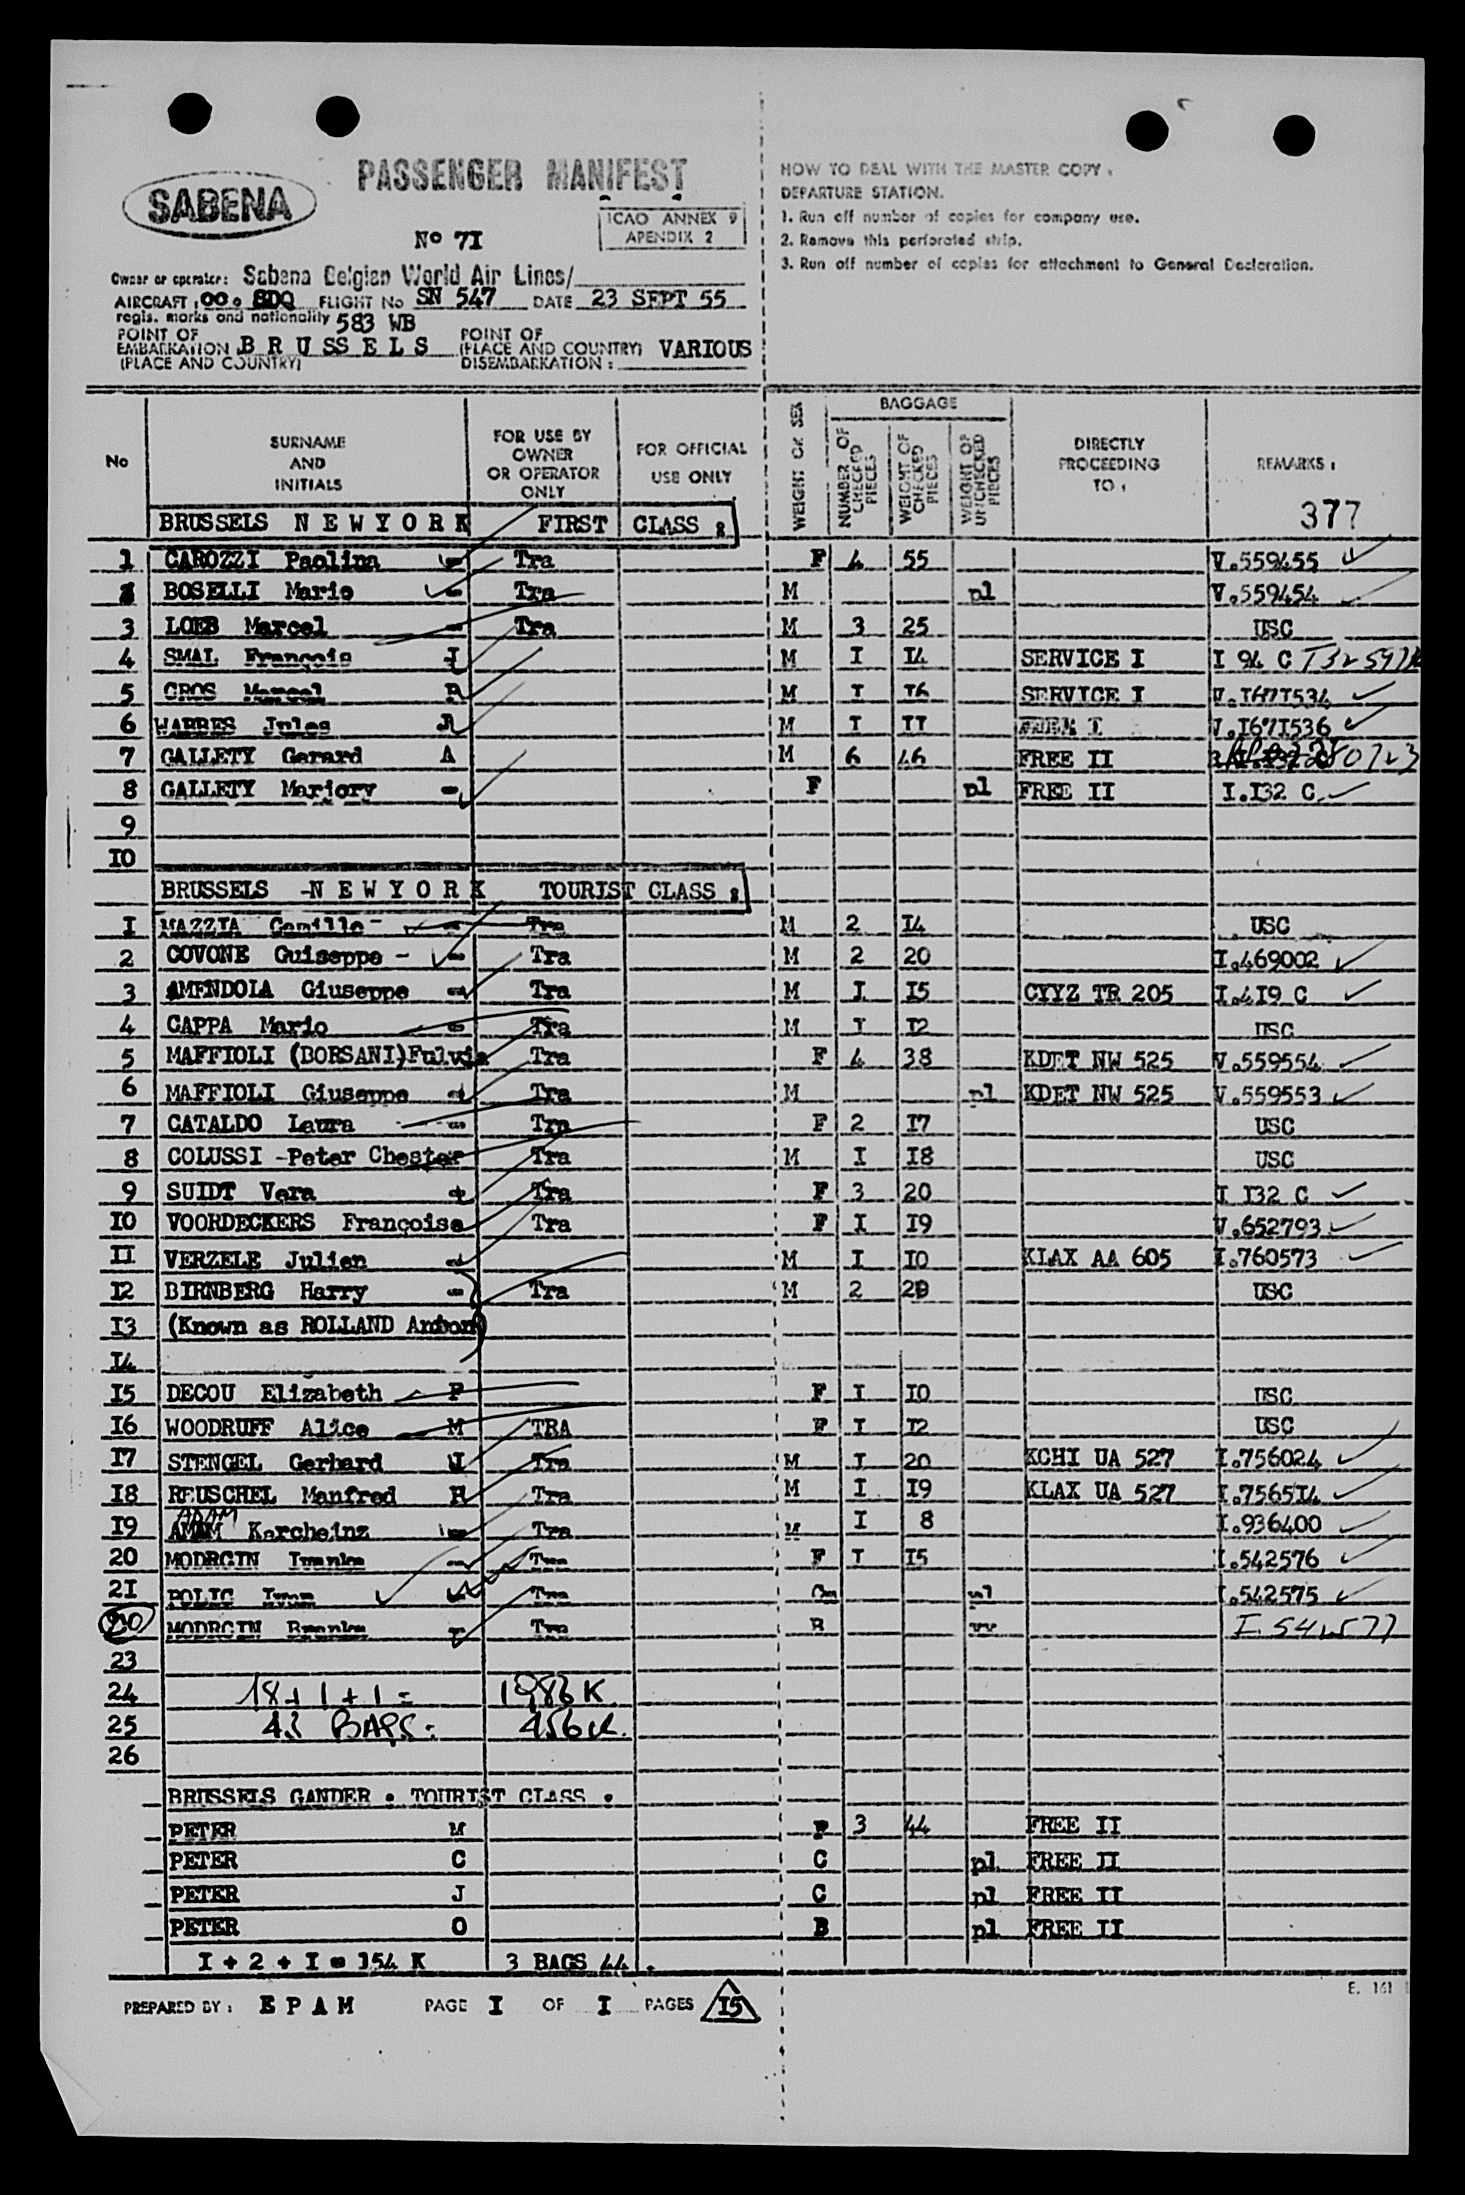 SABENA
PASSENGER MANIFEST
ICAO ANNEX 9
APENDIX 2
No 7I
Owner or operator: Sabena Belgian World Air Lines/
AIRCRAFT : OO. SDQ FLIGHT No SN 547 DATE 23 SEPT 55
regis. marks and nationality 583 WB
POINT OF EMBARKATION (PLACE AND COUNTRY) B R U SS E L S POINT OF (PLACE AND COUNTRY) DISEMBARKATION : VARIOUS
HOW TO DEAL WITH THE MASTER COPY :
DEPARTURE STATION.
1. Run off number of copies for company use.
2. Remove this perforated strip.
3. Run off number of copies for attachment to General Declaration.
No SURNAME AND INITIALS FOR USE BY OWNER OR OPERATOR ONLY FOR OFFICIAL USE ONLY WEIGHT OR SEX BAGGAGE NUMBER OF CHECKED PIECES WEIGHT OF CHECKED PIECES WEIGHT OF UNCHECKED PIECES DIRECTLY PROCEEDING TO : REMARKS :
377
BRUSSELS N E W Y O R K FIRST CLASS :
1 CAROZZI Paolina - Tra F 4 55 V.559455
BOSELLI Mario - Tra M pl V.559454
3 LOEB Marcel - Tra M 3 25 USC
4 SMAL François J M I I4 SERVICE I I 94 C
5 GROS Marcel R M I I6 SERVICE I V.I67I534
6 WARRES Jules R M I II FREE I V.I67I536
7 GALLETY Gerard A M 6 46 FREE II
8 GALLETY Marjory - F pl FREE II I.I32 C
9
IO
BRUSSELS -N E W Y O R K TOURIST CLASS :
I MAZZIA Camillo - Tra M 2 I4 USC
2 COVONE Guiseppe - Tra M 2 20 I.469002
3 AMENDOLA Giuseppe - Tra M I I5 CYYZ TR 205 I.4I9 C
4 CAPPA Mario - Tra M I I2 USC
5 MAFFIOLI (BORSANI)Fulvia Tra F 4 38 KDET NW 525 V.559554
6 MAFFIOLI Giuseppe - Tra M pl KDET NW 525 V.559553
7 CATALDO Laura - Tra F 2 I7 USC
8 COLUSSI -Peter Chester Tra M I I8 USC
9 SUIDT Vera - Tra F 3 20 I I32 C
IO VOORDECKERS Françoise Tra F I I9 V.652793
II VERZELE Julien - M I IO KLAX AA 605 I.760573
I2 BIRNBERG Harry - Tra M 2 USC
I3 (Known as ROLLAND
I4
I5 DECOU Elizabeth F F I IO USC
I6 WOODRUFF Alice M TRA F I I2 USC
I7 STENGEL Gerhard J Tra M I 20 KCHI UA 527 I.756024
I8 REUSCHEL Manfred R Tra M I I9 KLAX UA 527 I.7565I4
ADAM
I9 Karcheinz - Tra M I 8 I.936400
20 MODRCIN Ivanka - Tra F I I5 I.542576
2I POLIC Ivan Tra pl I.542575
MODRCIN Branka Tra B I 542577
23
24 18 + 1 + 1 = 1983 K
25 43 BAGS: 456 K.
26
BRUSSELS GANDER . TOURIST CLASS .
PETER M F 3 44 FREE II
PETER C C pl FREE II
PETER J C pl FREE II
PETER O B pl FREE II
I + 2 + I = 154 K 3 BAGS 44 .
PREPARED BY : E P A M PAGE I OF I PAGES I5
E. 161